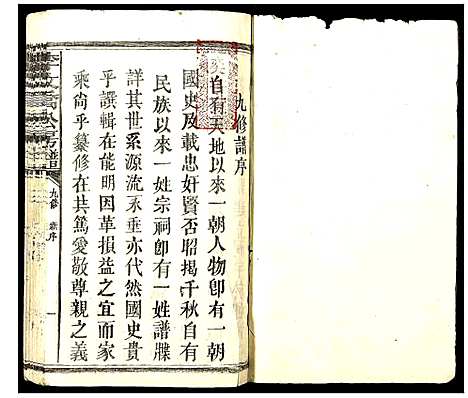 九修譜序
自有天地以來一朝人物卽有一朝
國史及載忠奸賢否昭揭千秋自有
民族以來一姓宗祠卽有一姓譜牒
詳其世系源流永垂亦代然國史貴
乎譔輯在能明因革損益之宜而家
乘尚乎纂修在共篤愛敬尊親之義
九修 譜序 一